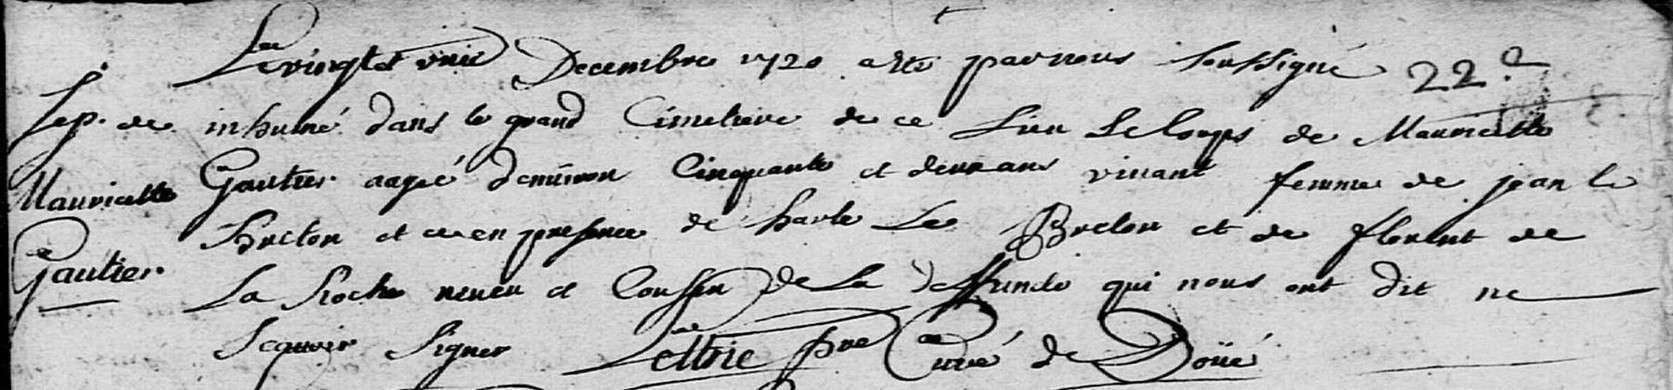 Le vingt et unie Decembre 1720 a ete par nous soussigné 22.e
Sep. de inhumé dans le grand Cimetiere de ce Lieu Le Corps de Mauricette
Mauricette Gautier aagéé d'environ Cinquante et deux ans vivant femme de jean le
Breton et ce en presence de Le Breton et de florent de
Gautier La Roche neveu et Cousin de La deffunte qui nous ont dit ne
Sçavoir Signer pre Curé de Doüé